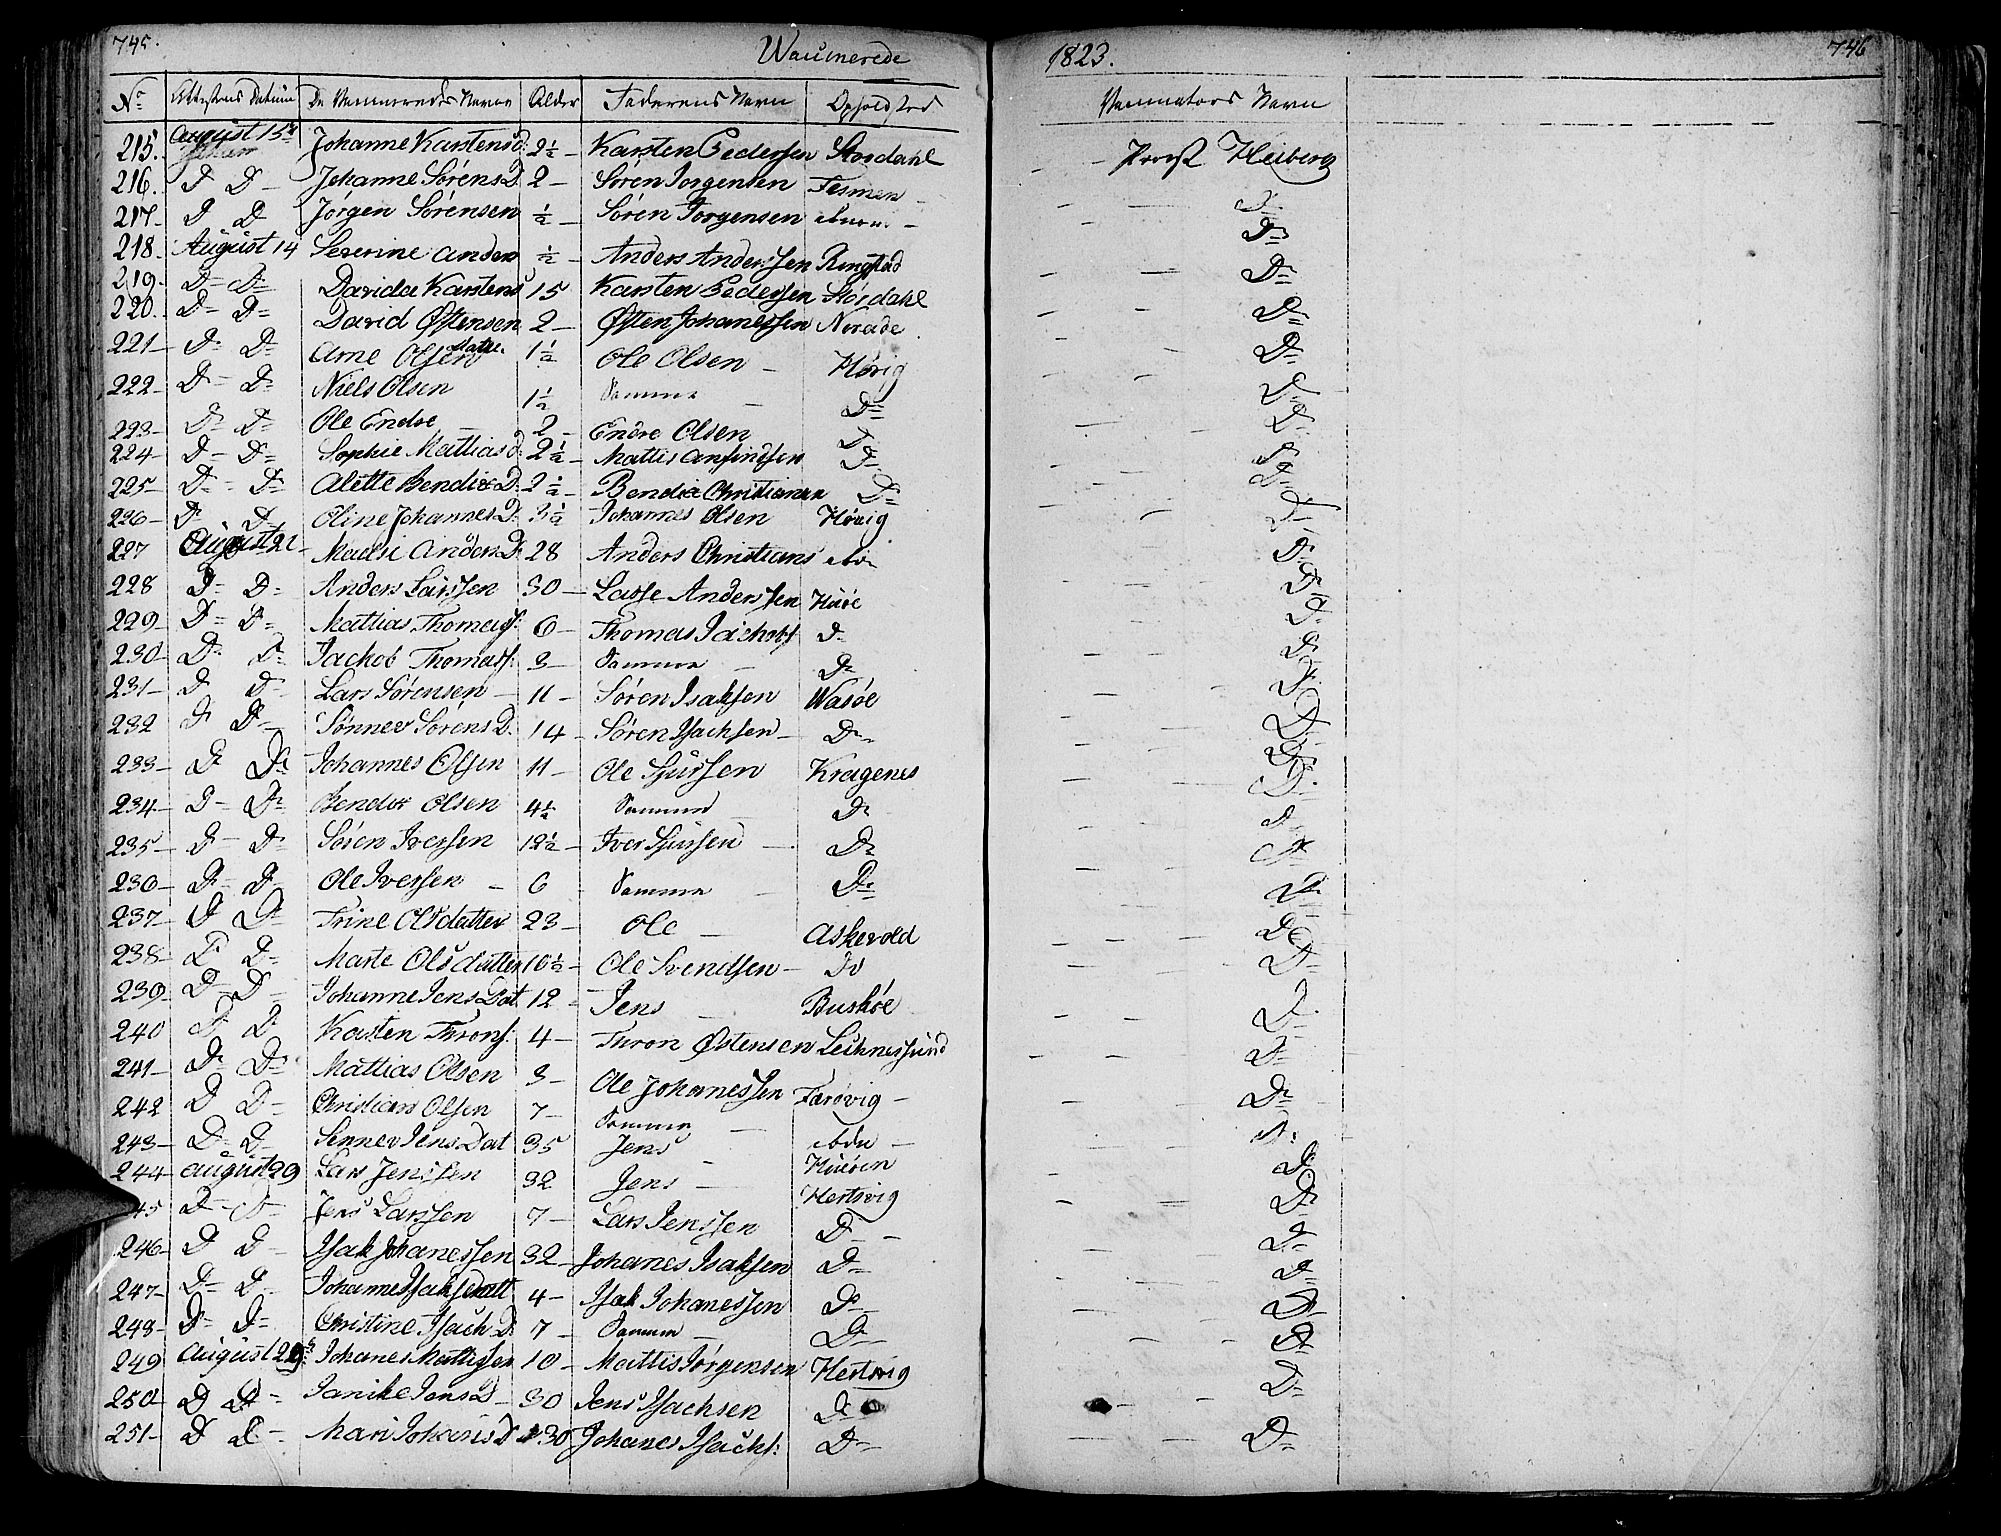 745.
Waccinerede
1823.
746
No Attestens Datum De Vaccineredes Navne Alder Faderens Navn Opholdsted Vaccinators Navn
215. August 15de Johanne Karstensd: 2½ - Karsten Pedersen Stordahl - Provst Heiberg
216. D D - Johanne SørensD. 2 - Søren Jorgensen Tesmen D.
217- D D Jórgen Sørensen ½ - Søren Jorgensen D
218. August 14 Severine Anders ½ - Anders Anderssen Ringstad D
219. D - D - Davida Karstens 15 Karsten Pedersen Stordahl D
220. D - D - David Østensen 2 - Østen Johanessen D
221 - D D - Arne Olsen 1½ Ole Olsen - Hòvig D
222- D - D - Niels Olsen 1½ Samme - D D
223- D - D - Ole Endre - 2 - Endre Olsen D D
224- D - D - Sophie Mathiasd: 2½ - Mattis D D
225- D - D - Alette BendixD. 2½ - Bendix Christiansen D D
226- D - D - Oline JohannesD. 3½ Johannes Olsen Hòvig D
227 August 21 - AndersD. 28 Anders Christians D
228 D - D - Anders Larssen 30 - Lasse Anderssen Husøe D
229- D - D - Mattias Thomass: 6 - Thomas Jachobs D D
230- D D - Jackob Thomass: 3 - Samme - D D
231- D D - Lars Sørensen - 11 - Søren Isaksen Wasóe D
232 D D - Sønnev SørensD. 14 - Søren Isachsen - D D
233- D D Johannes Olsen 11 - Ole Sjursen Kragenes D
234- D - D Bendix Olsen 4½ Samme D D
235- D - D Søren Iversen 12½ - Iver Sjursen - D D
236- D - D Ole Iversen - 6 Samme - D D
237- D D - Trine Olsdatter 23 - Ole - Askevold D
238- D D - Marte Olsdatter 10½ - Ole Svendsen - Do D
239- D - D - Johanne Jens Dat. 12 - Jens - Buskøe D
240 D D Karsten Throns: 4 - Thron Østensen Leknessund D
241- D D - Mattias Olsen 3 - Ole Johanessen Færøvig - D
242 D D - Christian Olsen 7 - Samme - D
243- D - D Sennev Jens Dat 35 Jens ebdn - D
244- August 29 Lars Jenssen 32 Jens - Hertsvig D
45 D - D - Jens Larssen 7 - Lars Jenssen D - D
246- D D - Isak Johanessen 32 - Johanes Isaksen D - D
247- D - D - Johanne Isaksdatt 4 - Isak Johanessen D - D
248- D - D - Christine Isach D. 7 - Samme - D - D
249 August 29 Johanes Mattissen 10 - Mattis Jørgensen Hertsvig D
250- D D - Janike JensD - 30 Jens Isachsen D D
251- D D - Mari JohanisD 30 Johanes Isachs: D - D